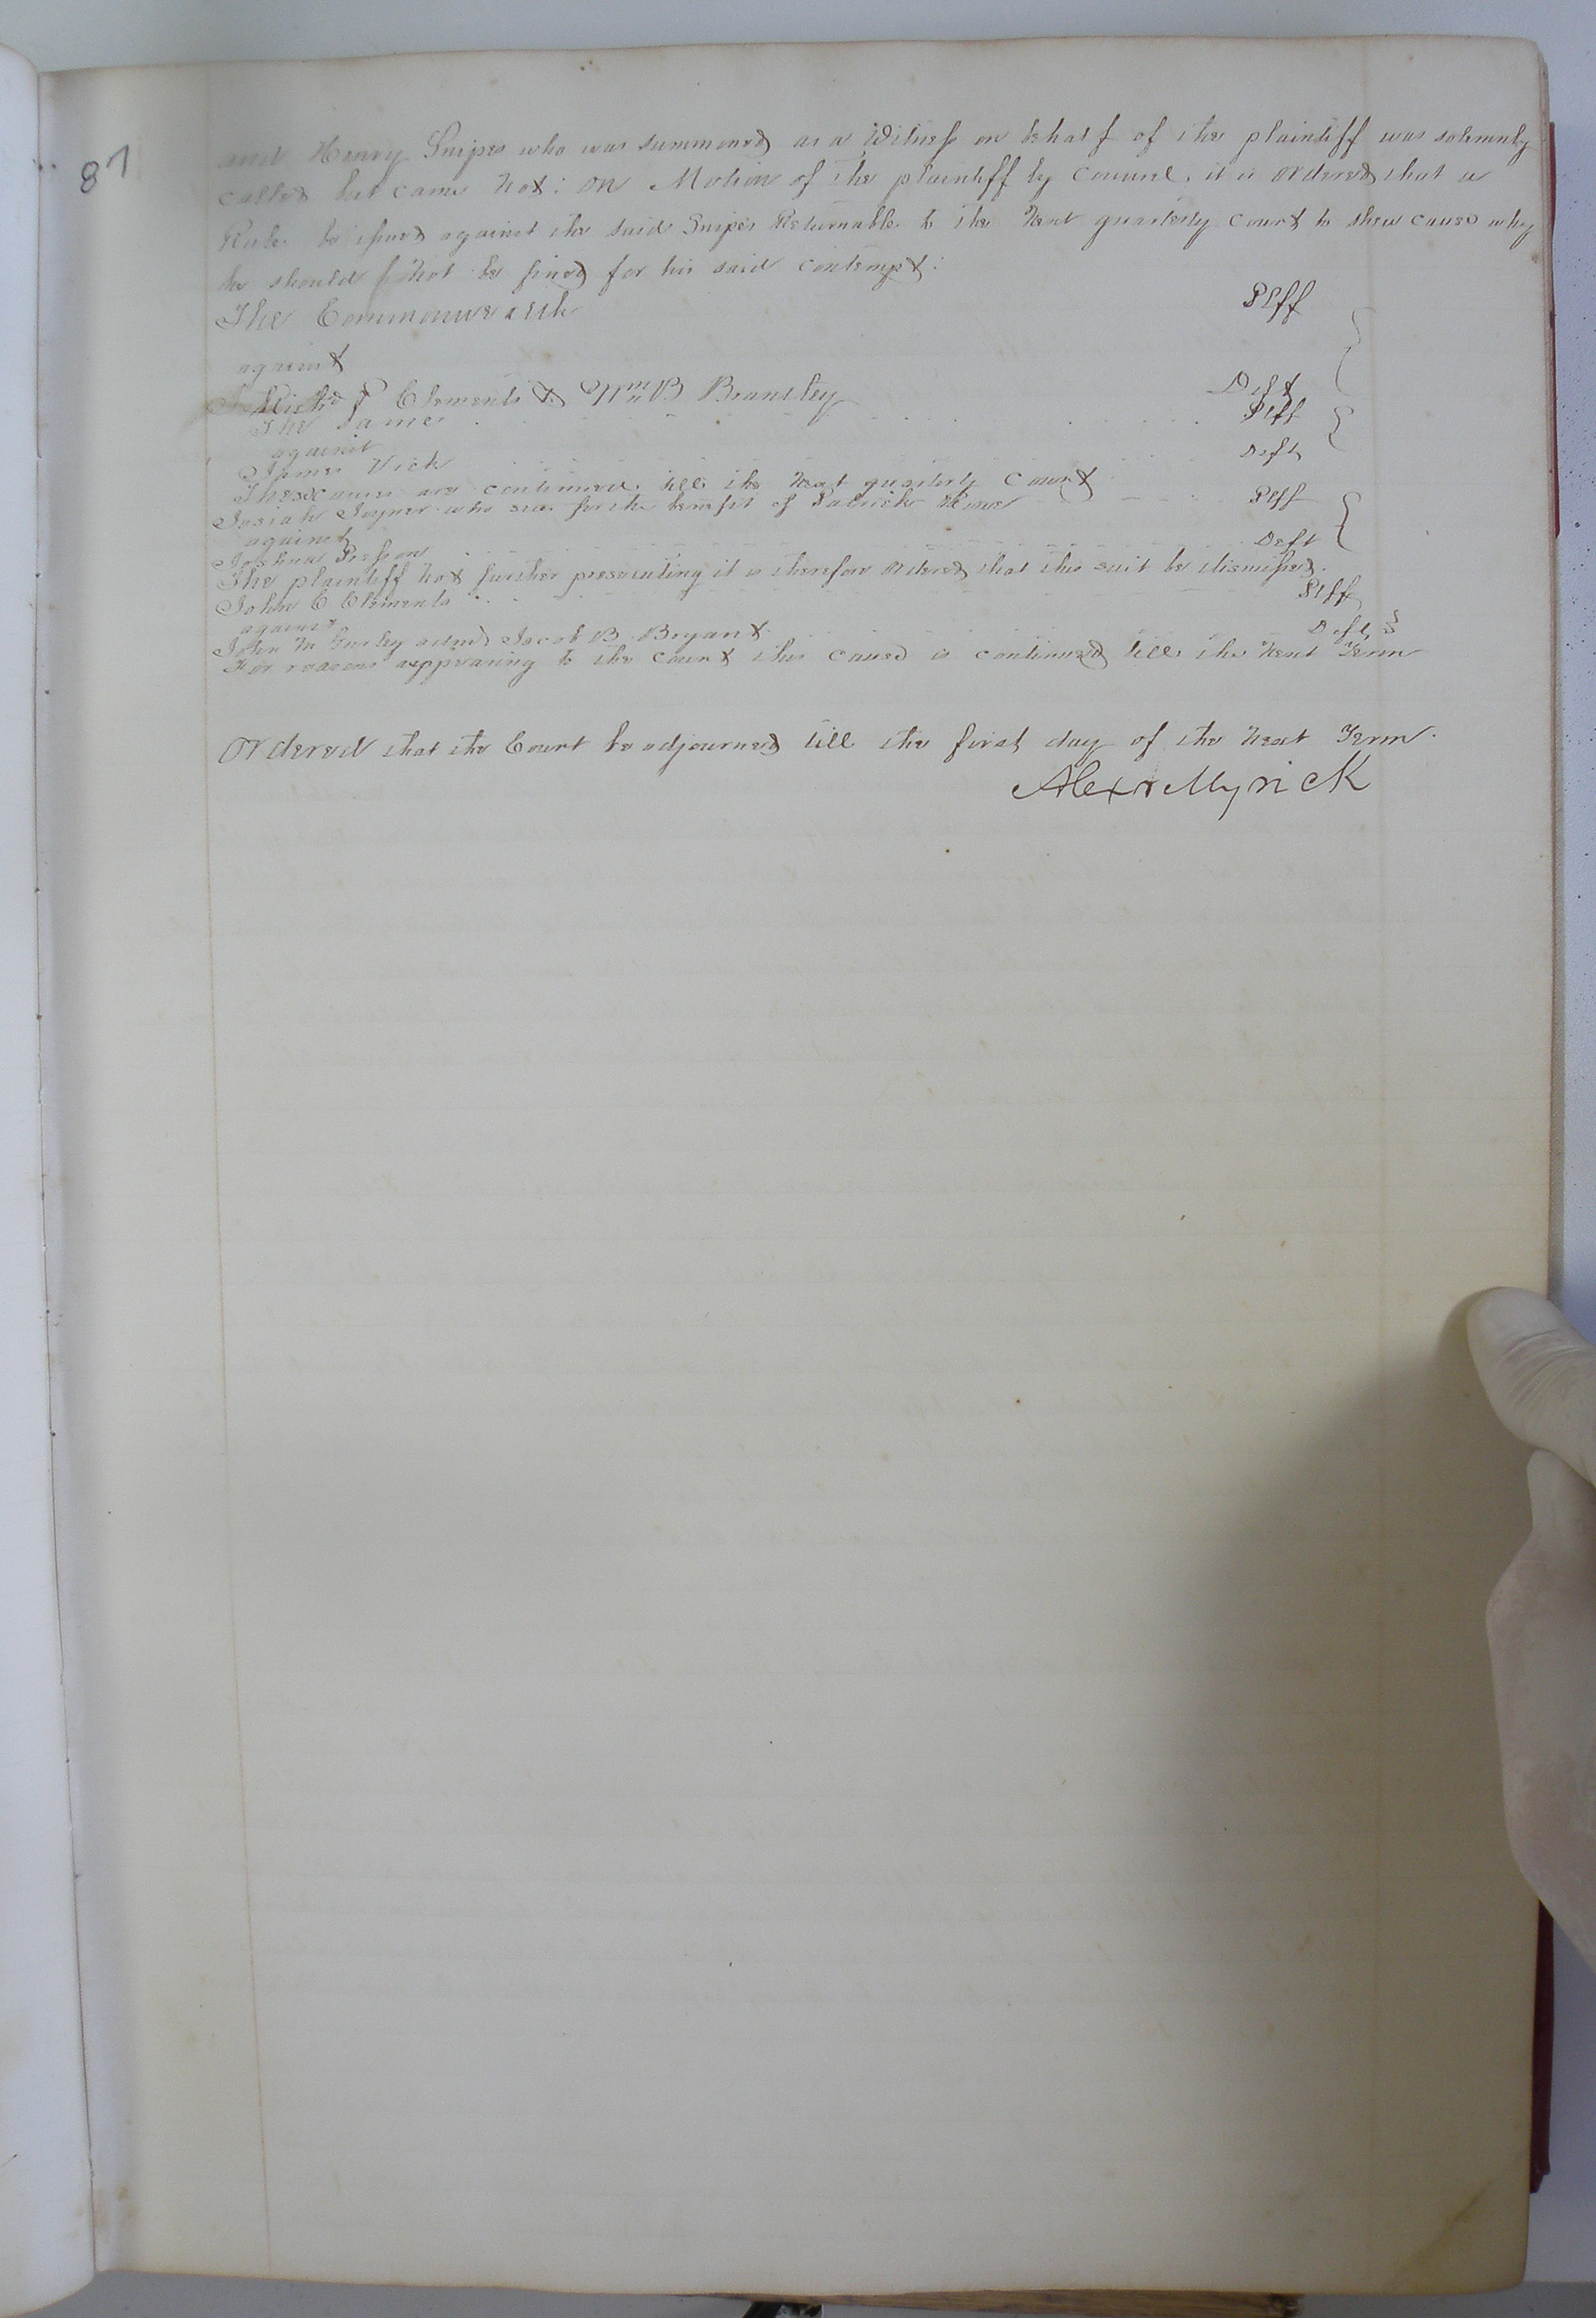 87
and Henry Snipes who was summoned as a Witness on behalf of the plaintiff was solemnly
called but came not: on Motion of the plaintiff by Counsel. it is ordered that a
Rule be issued against the said Snipes Returnable to the Next quarterly Court to shew cause why
he should not be fined for his said contempt:
The Commonwealth Plff
against
Richd P Clements & Wm B Brantley Deft
The same Plff
against
James Vick Deft
These causes are continued till the Next quarterly Court
Josiah Joyner who sues for the benefit of Patrick Plff
against
Joshua Deft
The plaintiff not further prosecuting it is therefore ordered that this suit be dismissed.
John C Clements Plff
against
John N Gurley and Jacob B Bryant Deft
For reasons appearing to the Court this cause is continued till the Next Term
Ordered that the Court be adjourned till the first day of the Next Term.
Alexr Myrick